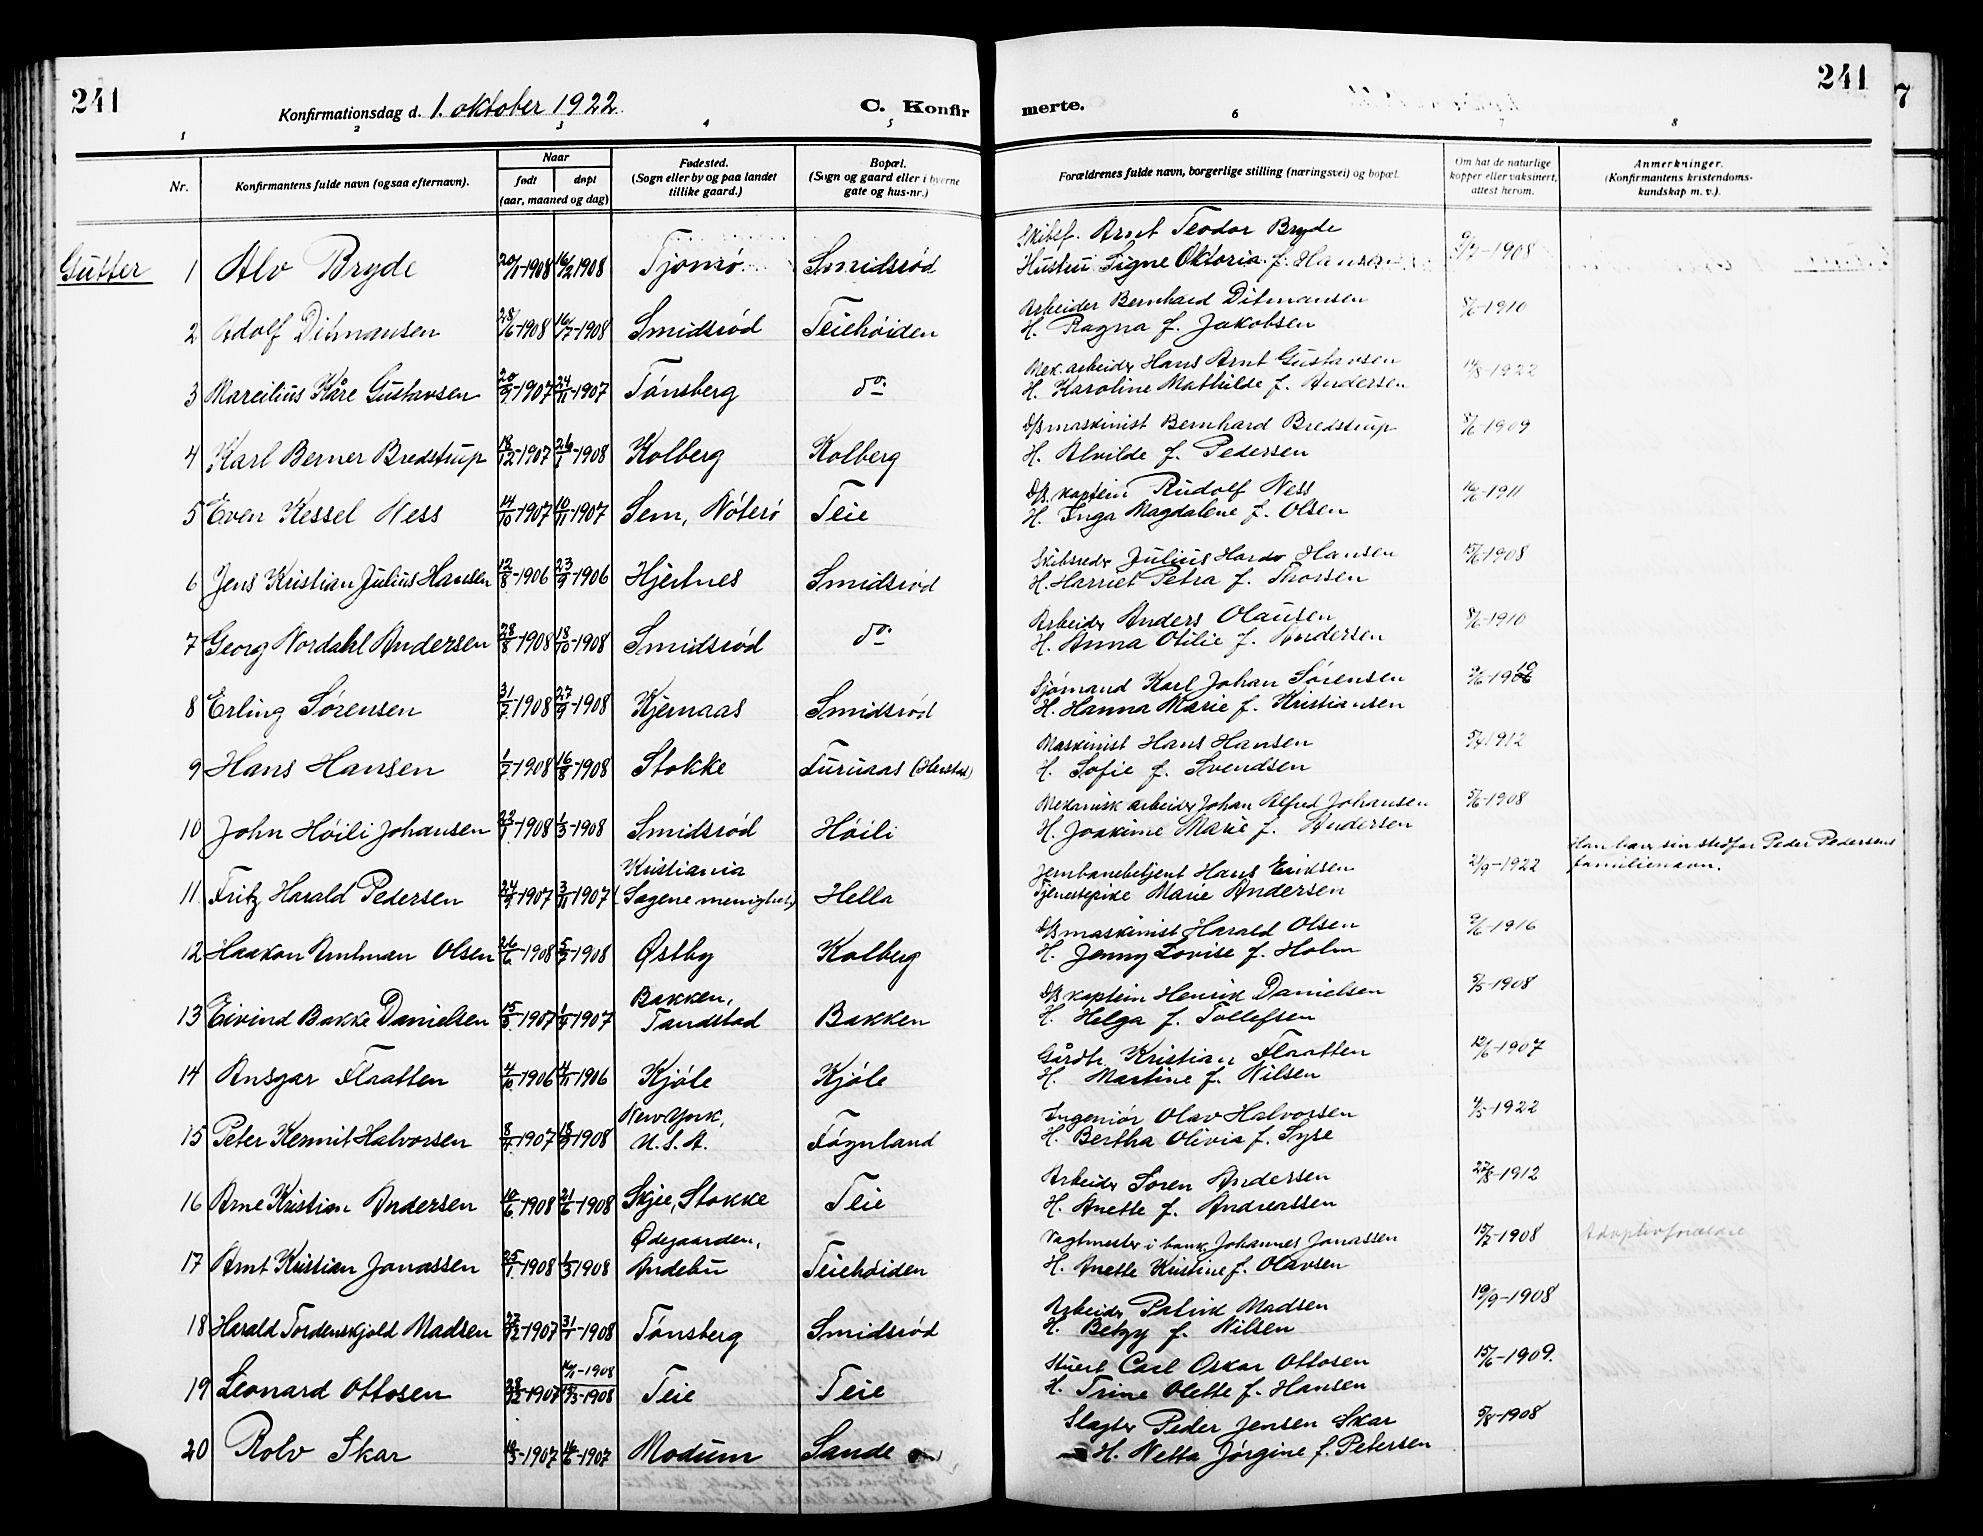 241
Konfirmationsdag d. 1. oktober 1922.
C. Konfir
merte.
241
7
1 2 3 4 5 6 7 8
Nr.
Konfirmantens fulde navn (ogsaa efternavn).
Naar
født
døpt
(aar, maaned og dag)
Fødested.
(Sogn eller by og paa landet
tillike gaard.)
Bopæl.
(Sogn og gaard eller i byerne
gate og hus-nr.)
Forældrenes fulde navn, borgerlige stilling (næringsvei) og bopæl.
Om hat de naturlige
kopper eller vaksinert,
attest herom.
Anmerkninger.
(Konfirmantens kristendoms-
kundskap m. v.).
Gutter
Skibsf. Arnt Teodor Bryde
1 Alv Bryde 20/1-1908 16/2 1908 Tjømø Smidsrød Hustru Signe Oktoria f. Hansen 9/7-1908
Arbeider Bernhard Ditmansen
2 Adolf Ditmansen 28/6-1908 1908 Smidsrød Teiehøiden H. Ragna f. Jakobsen 8/6-1910
Mek. arbeider Hans Arnt Gustavsen
3 Marcilius Kåre Gustavsen 20/9-1907 24/11-1907 Tønsberg do. H. Karoline Mathilde f. Andersen 14/8-1922
D/S maskinist Bernhard Bredstrup
4 Karl Berner Bredstrup 18/12-1907 26/1-1908 Kolberg Kolberg H. Alvilde f. Pedersen 8/6-1909
D/S. kaptein Rudolf Ness
5 Even Kessel Ness 14/10-1907 10/11-1907 Sem, Nøterø Teie H. Inga Magdalene f. Olsen 1911
Skibsreder Julius Hansen
6 Jens Kristian Julius Hansen 12/8-1906 23/9-1906 Hjertnes Smidsrød H. Harriet Petra f. Thorsen 15/6-1908
Arbeider Anders Olausen
7 Georg Nordahl Andersen 28/8-1908 18/10-1908 Smidsrød do. H. Anna Otilie f. Andersen 8/6-1910
Sjømand Karl Johan Sørensen
8 Erling Sørensen 31/7-1908 27/9-1908 Kjernaas Smidsrød H. Hanna Marie f. Kristiansen
Maskinist Hans Hansen
9 Hans Hansen 1/7-1908 16/8-1908 Stokke Furuaas H. Sofie f. Svendsen 1912
Mekanisk arbeider Johan Alfred Johansen
10 John Høili Johansen 1908 1/3-1908 Smidsrød Høili H. Joakime Marie f. Andersen 5/6-1908
Han bær sin stedfar Peder Pedersens
familienavn.
Kristiania
Jernbanebetjent Hans Eriksen
11 Fritz Harald Pedersen 24/9-1907 3/11-1907 (Sagene menighet) Hella Tjenestepike Marie Andersen 21/9-1922
D/S maskinist Harald Olsen
12 Haakon Amtman Olsen 26/6-1908 1908 Østby Kolberg H. Jenny Lovise f. Holm 9/6-1916
Bakken,
D/S kaptein Henrik Danielsen
13 Eivind Bakke Danielsen 1907 1907 Tandstad Bakken H. Helga f. Tollefsen 5/5-1908
Gårdbr. Kristian Flaatten
14 Ansgar Flaatten 4/10-1906 4/11-1906 Kjøle Kjøle H. Martine f. Nilsen 12/6-1907
New York,
Ingeniør Olav Halvorsen
15 Peter Kermit Halvorsen 1907 1908 U.S.A. Føynland H. Bertha Olivia f. Syse 4/5-1922
Arbeider Søren Andersen
16 Arne Kristian Andersen 10/6-1908 21/6-1908 Skjee, Stokke Teie H. Anette f. Andreassen 22/8-1912
Ødegaarden,
Vagtmester i bank Johannes Jonassen
17 Arnt Kristian Jonassen 25/1-1908 1/3-1908 Andebu Teiehøiden H. Anette Kristine f. Olavsen 15/7-1908 Adoptivforældre
Arbeider Patrik Madsen
18 Harald Tordenskjold Madsen 22/12-1907 31/1-1908 Tønsberg Smidsrød H. Betzy f. Nilsen 19/9-1908
1908
Stuert Carl Oskar Ottosen
19 Leonard Ottosen 28/12-1907 1908 Teie Teie H. Trine Olette f. Hansen 15/6-1909.
Slagter Peder Jensen Skar
20 Rolv Skar 1907 1907 Modum Sande H. Netta Jørgine f. Petersen 5/8-1908